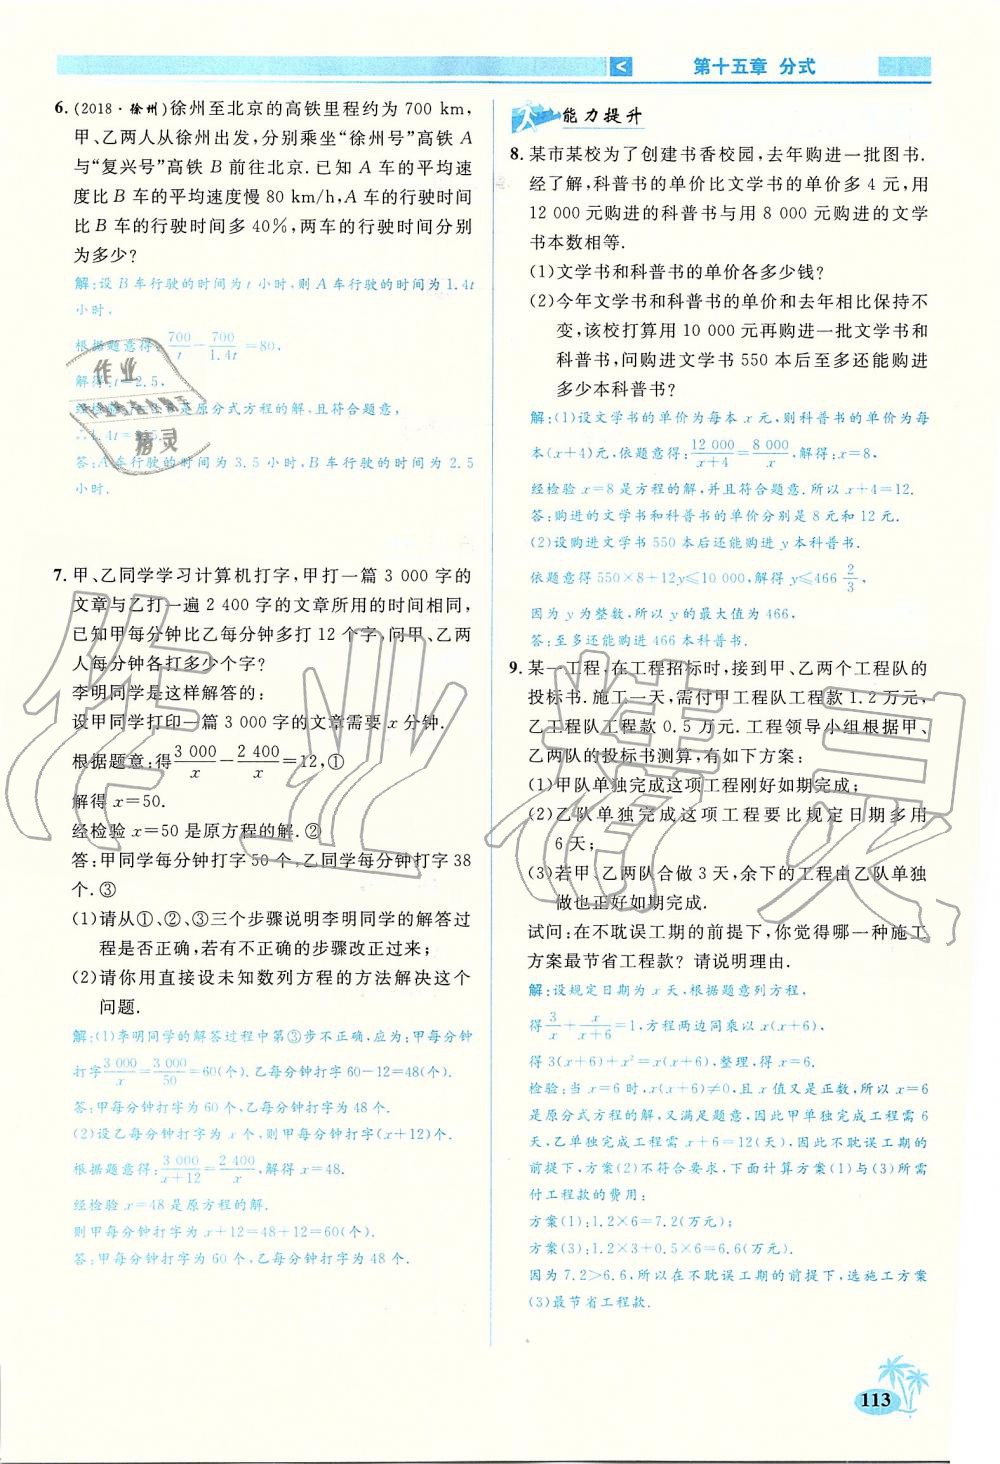 第十五章 分式
6. (2018·徐州)徐州至北京的高铁里程约为 700 km,
甲、乙两人从徐州出发,分别乘坐“徐州号”高铁 A
与“复兴号”高铁 B 前往北京.已知 A 车的平均速
度比 B 车的平均速度慢 80 km/h,A 车的行驶时间
比 B 车的行驶时间多 40%,两车的行驶时间分别
为多少?
解:设 B 车行驶的时间为 t 小时,则 A 车行驶的时间为 1.4t
小时,
根据题意得:700/t-700/1.4t=80,
解得:t=2.5,
经检验,t=2.5是原分式方程的解,且符合题意,
∴1.4t=3.5.
答:A 车行驶的时间为 3.5 小时,B 车行驶的时间为 2.5
小时.
7. 甲、乙同学学习计算机打字,甲打一篇 3 000 字的
文章与乙打一遍 2 400 字的文章所用的时间相同,
已知甲每分钟比乙每分钟多打 12 个字,问甲、乙两
人每分钟各打多少个字?
李明同学是这样解答的:
设甲同学打印一篇 3 000 字的文章需要 x 分钟.
根据题意:得3 000/x-2 400/x=12,①
解得 x=50.
经检验 x=50 是原方程的解.②
答:甲同学每分钟打字 50 个,乙同学每分钟打字 38
个.③
(1)请从①、②、③三个步骤说明李明同学的解答过
程是否正确,若有不正确的步骤改正过来;
(2)请你用直接设未知数列方程的方法解决这个
问题.
解:(1)李明同学的解答过程中第③步不正确,应为:甲每分钟
打字3 000/x=3 000/50=60(个).乙每分钟打字 60-12=48(个).
答:甲每分钟打字为 60 个,乙每分钟打字为 48 个.
(2)设乙每分钟打字为 x 个,则甲每分钟打字为(x+12)个.
根据题意得:3 000/x+12=2 400/x,解得 x=48.
经检验 x=48 是原方程的解.
则甲每分钟打字为 x+12=48+12=60(个)
答:甲每分钟打字为 60 个,乙每分钟打字为 48 个.
能力提升
8. 某市某校为了创建书香校园,去年购进一批图书.
经了解,科普书的单价比文学书的单价多 4 元,用
12 000 元购进的科普书与用 8 000 元购进的文学
书本数相等.
(1)文学书和科普书的单价各多少钱?
(2)今年文学书和科普书的单价和去年相比保持不
变,该校打算用 10 000 元再购进一批文学书和
科普书,问购进文学书 550 本后至多还能购进
多少本科普书?
解:(1)设文学书的单价为每本 x 元,则科普书的单价为每
本(x+4)元,依题意得:12 000/x+4=8 000/x,解得:x=8,
经检验 x=8 是方程的解,并且符合题意.所以 x+4=12.
答:购进的文学书和科普书的单价分别是 8 元和 12 元.
(2)设购进文学书 550 本后还能购进 y 本科普书.
依题意得 550×8+12y≤10 000,解得 y≤466 2/3,
因为 y 为整数,所以 y 的最大值为 466,
答:至多还能购进 466 本科普书.
9. 某一工程,在工程招标时,接到甲、乙两个工程队的
投标书.施工一天,需付甲工程队工程款 1.2 万元,
乙工程队工程款 0.5 万元.工程领导小组根据甲、
乙两队的投标书测算,有如下方案:
(1)甲队单独完成这项工程刚好如期完成;
(2)乙队单独完成这项工程要比规定日期多用
6 天;
(3)若甲、乙两队合做 3 天,余下的工程由乙队单独
做也正好如期完成.
试问:在不耽误工期的前提下,你觉得哪一种施工
方案最节省工程款? 请说明理由.
解:设规定日期为 x 天,根据题意列方程,
得3/x+x/x+6=1,方程两边同乘以 x(x+6),
得 3(x+6)+x²=x(x+6),整理,得 x=6.
检验:当 x=6 时,x(x+6)≠0,且 x 值又是正数,所以 x=6
是原分式方程的解,又满足题意,因此甲单独完成工程需 6
天,乙单独完成工程需 x+6=12(天),因此不耽误工期的
前提下,方案(2)不符合要求,下面计算方案(1)与(3)所需
付工程款的费用:
方案(1):1.2×6=7.2(万元);
方案(3):1.2×3+0.5×6=6.6(万元).
因为 7.2>6.6,所以在不耽误工期的前提下,选施工方案
(3)最节省工程款.
113
作业精灵
作业
精灵